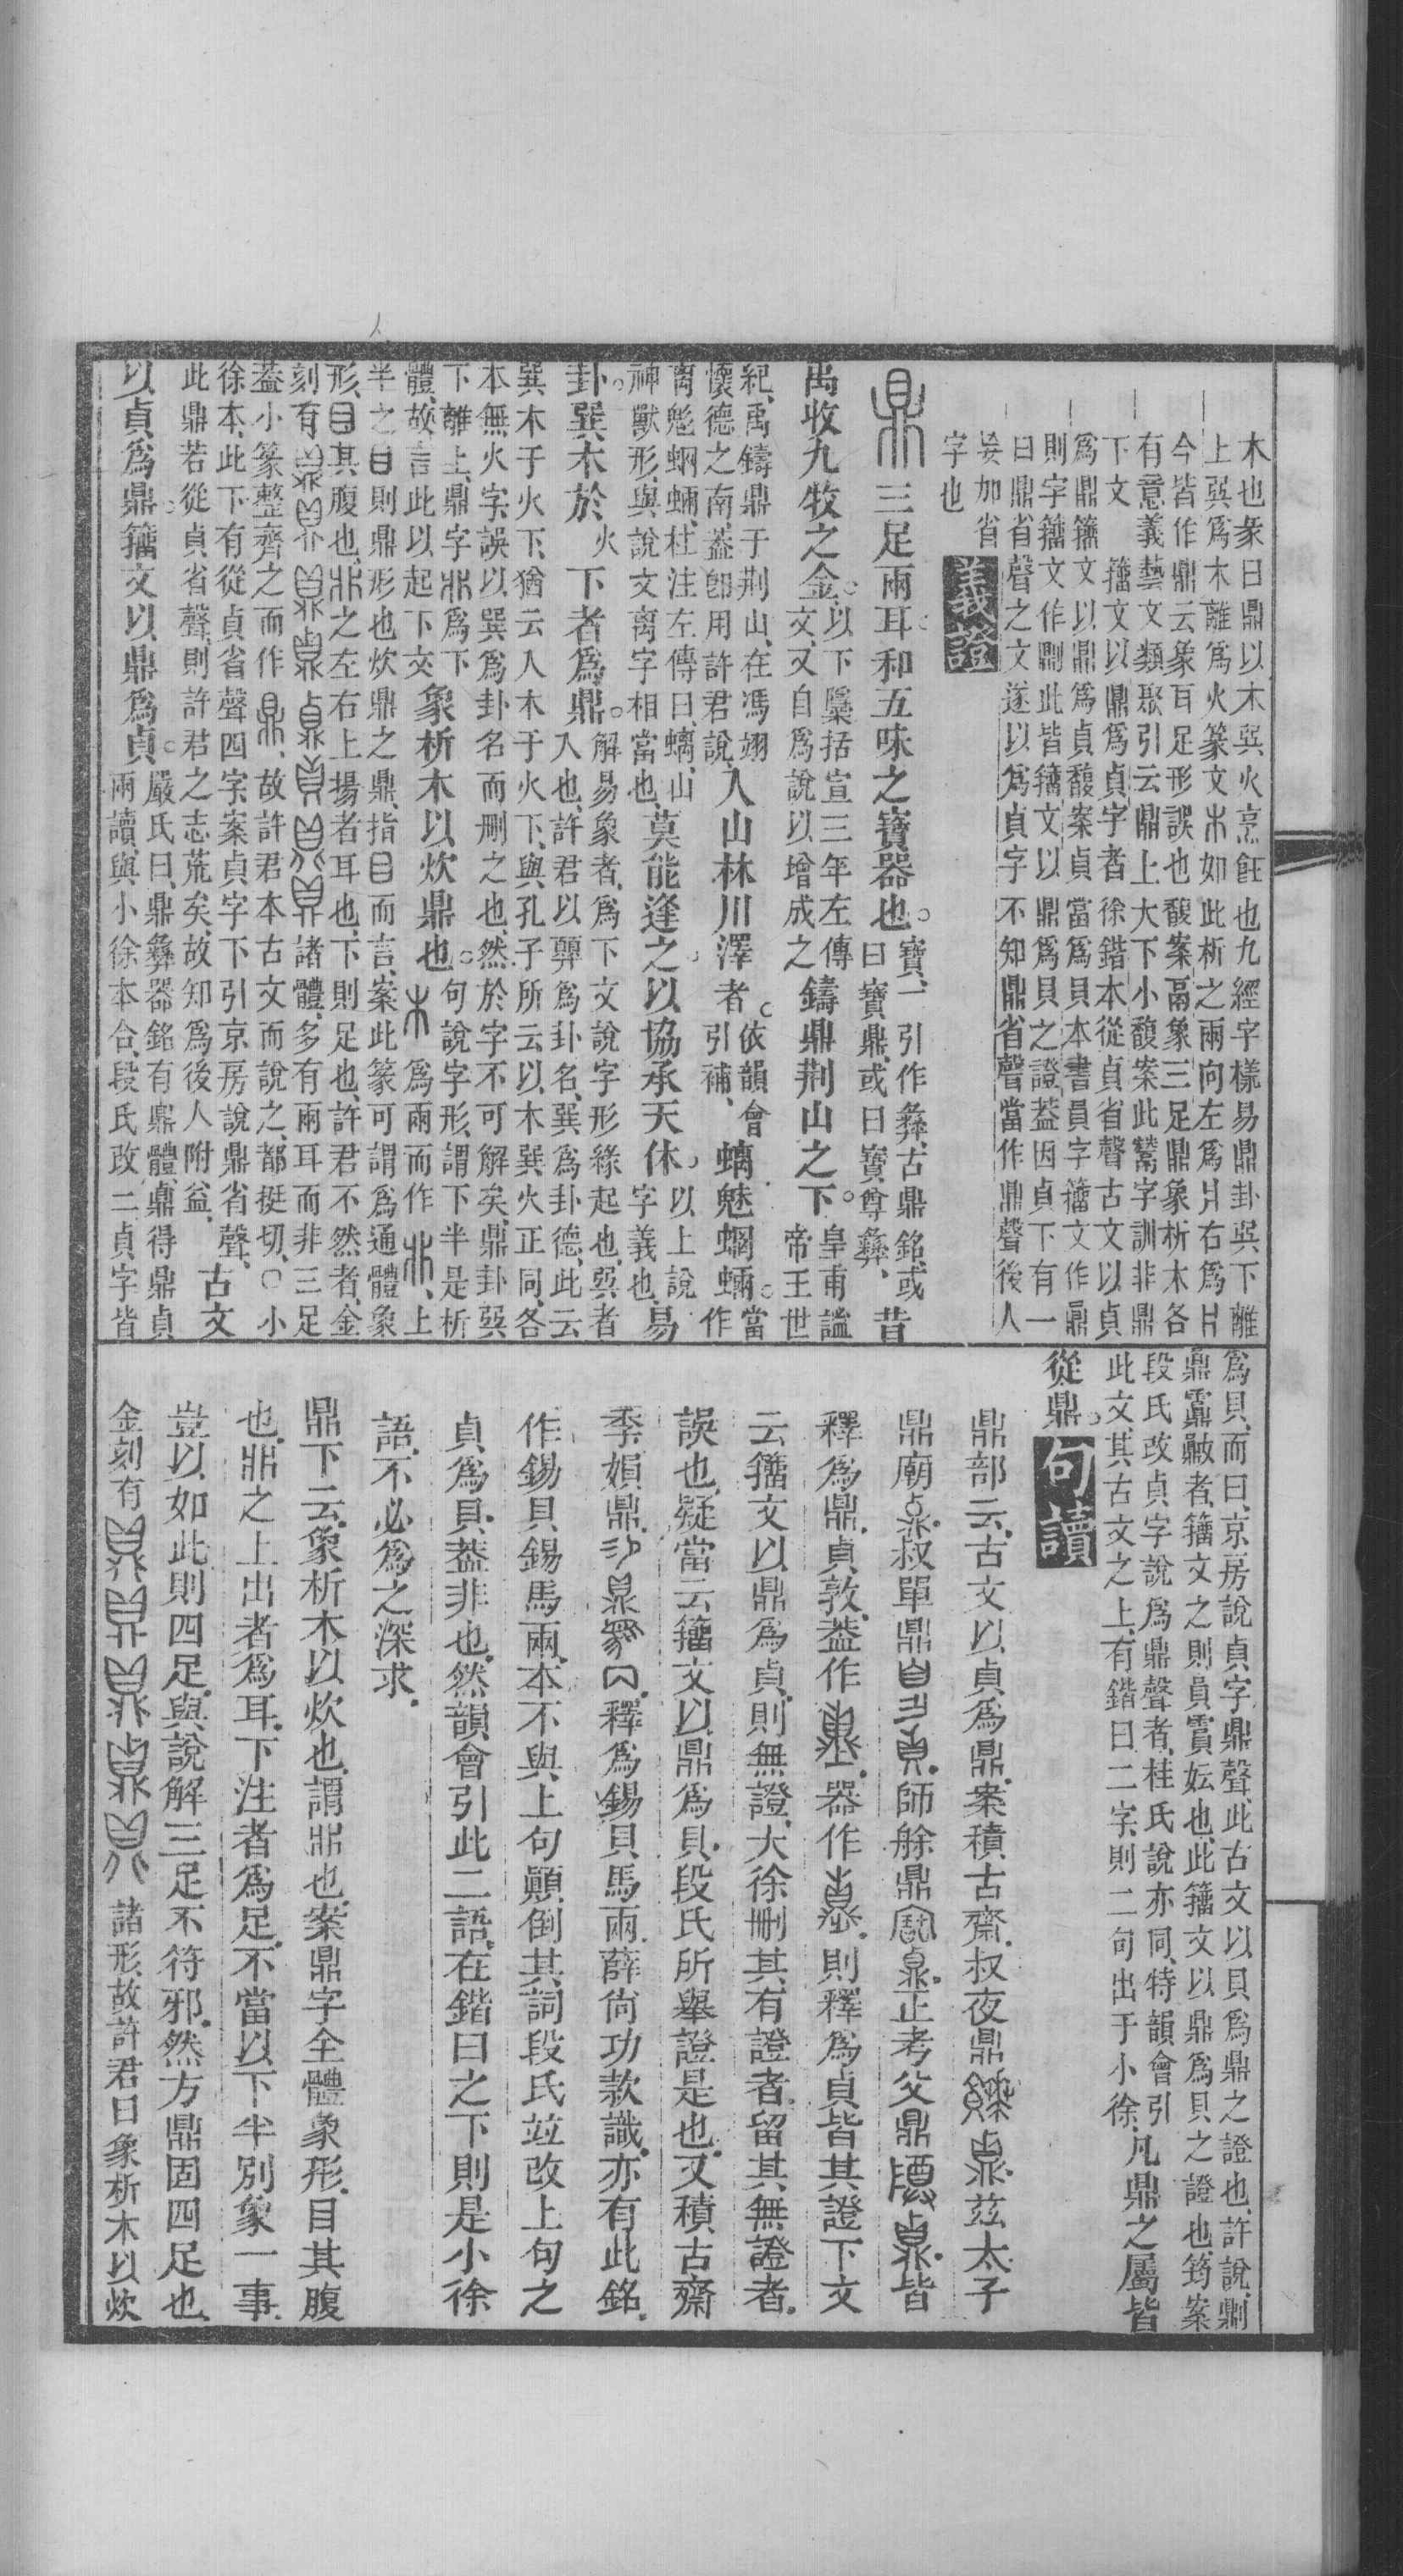 木也彖曰鼎以木巽火烹飪也九經字樣易鼎卦巽下離
上巽爲木離爲火篆文木如此析之兩向左爲爿右爲片
今皆作鼎云象耳足形誤也馥案鬲象三足鼎象析木各
有意義藝文類聚引云鼎上大下小馥案此鬵字訓非鼎
下文 籒文以鼎爲貞字者徐鍇本從貞省聲古文以貞
爲鼎籒文以鼎爲貞馥案貞當爲貝本書員字籒文作鼎
則字籒文作鼎此皆籒文以鼎爲貝之證葢因貞下有一
曰鼎省聲之文遂以爲貞字不知鼎省聲當作鼎聲後人
妄加省
字也 義證
鼎三足兩耳和五味之寶器也。寶、一引作彝、古鼎銘、或
曰寶鼎、或曰寶尊彝、昔
禹收九牧之金。以下檃括宣三年左傳
文、又自爲說以增成之鑄鼎荆山之下。皇甫謐
帝王世
紀、禹鑄鼎于荆山、在馮翊
懷德之南、葢卽用許君說、入山林川澤者。依韻會
引補、螭魅蝄蜽。當
作
离鬽蛧蜽、杜注左傳曰、螭、山
神獸形、與說文离字相當也、莫能逢之、以協承天休、以上說
字義也、易
卦巽木於火下者爲鼎。解易象者、爲下文說字形緣起也、巽者
入也、許君以顨爲卦名、巽爲卦德、此云
巽木于火下、猶云入木于火下、與孔子所云以木巽火正同、各
本無火字、誤以巽爲卦名而刪之也、然於字不可解矣、鼎卦巽
下離上、鼎字爲下
體、故言此以起下文象析木以炊鼎也。句說字形、謂下半是析
木爲兩而作 、上
半之目則鼎形也炊鼎之鼎、指目而言、案此篆可謂爲通體象
形、目其腹也、之左右上揚者耳也、下則足也、許君不然者、金
刻有 諸體、多有兩耳而非三足
葢小篆整齊之而作鼎、故許君本古文而說之、都挺切、〇小
徐本、此下有從貞省聲四字、案貞字下引京房說鼎省聲、
此鼎若從貞省聲、則許君之志荒矣、故知爲後人附益、古文
以貞爲鼎。籒文以鼎爲貞。嚴氏曰、鼎彝器銘有鼎體、鼎得鼎貞
兩讀、與小徐本合、段氏改二貞字皆
爲貝、而曰、京房說貞字鼎聲、此古文以貝爲鼎之證也、許說
者、籒文之則員霣妘也、此籒文以鼎爲貝之證也、筠案
段氏改貞字說爲鼎聲者、桂氏說亦同、特韻會引
此文、其古文之上、有鍇曰二字、則二句出于小徐、凡鼎之屬皆
從鼎。句讀
鼎部云、古文以貞爲鼎、案積古齋、叔夜鼎 玆太子
鼎廟 叔單鼎 師艅鼎 正考父鼎 皆
釋爲鼎、貞敦、葢作 、器作 、則釋爲貞皆其證下文
云籒文以鼎爲貞、則無證、大徐刪其有證者、留其無證者、
誤也、疑當云籒文以鼎爲貝、段氏所舉證是也、又積古齋
季娟鼎、 釋爲錫貝馬兩、薛尚功款識、亦有此銘、
作錫貝錫馬兩、本不與上句顚倒其詞段氏竝改上句之
貞爲貝、葢非也、然韻會引此二語、在鍇曰之下則是小徐
語、不必爲之深求、
鼎下云、象析木以炊也、謂 也、案鼎字全體象形、目其腹
也、 之上出者爲耳、下注者爲足、不當以下半別象一事、
豈以如此則四足、與說解三足不符邪、然方鼎固四足也、
金刻有 諸形、故許君曰象析木以炊